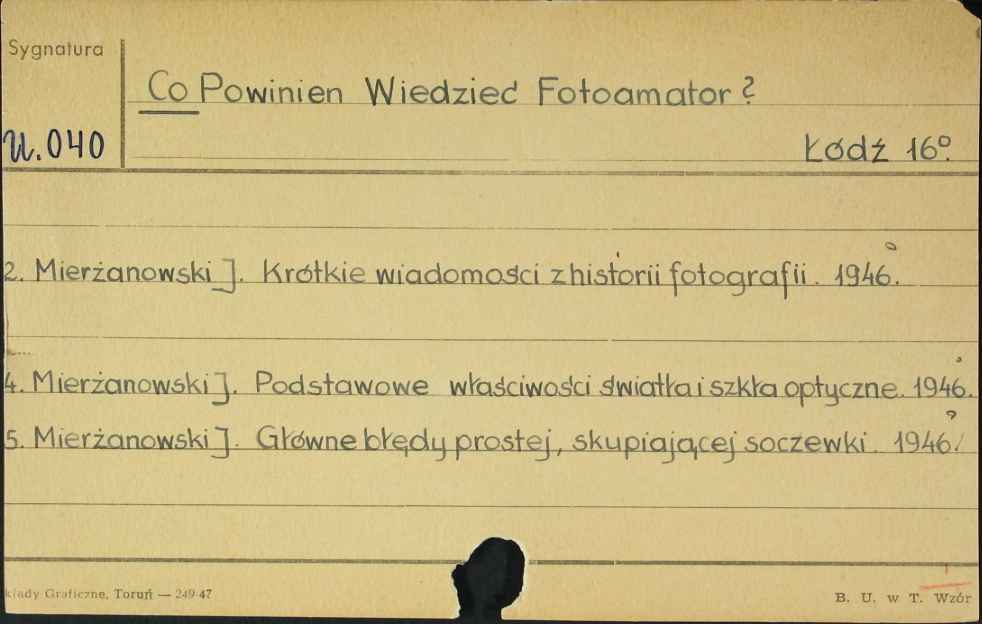 Sygnatura
Co Powinien Wiedzieć Fotoamator?
U. 040
Łódź 16°.
2. Mierżanowski J. Krótkie wiadomości z historii fotografii. 1946.
4. Mierżanowski J. Podstawowe właściwości światła i szkła optyczne. 1946.
5. Mierżanowski J. Główne błędy prostej, skupiającej soczewki. 1946.
kłady Graficzne, Toruń — 249-47
B. U. w T. Wzór